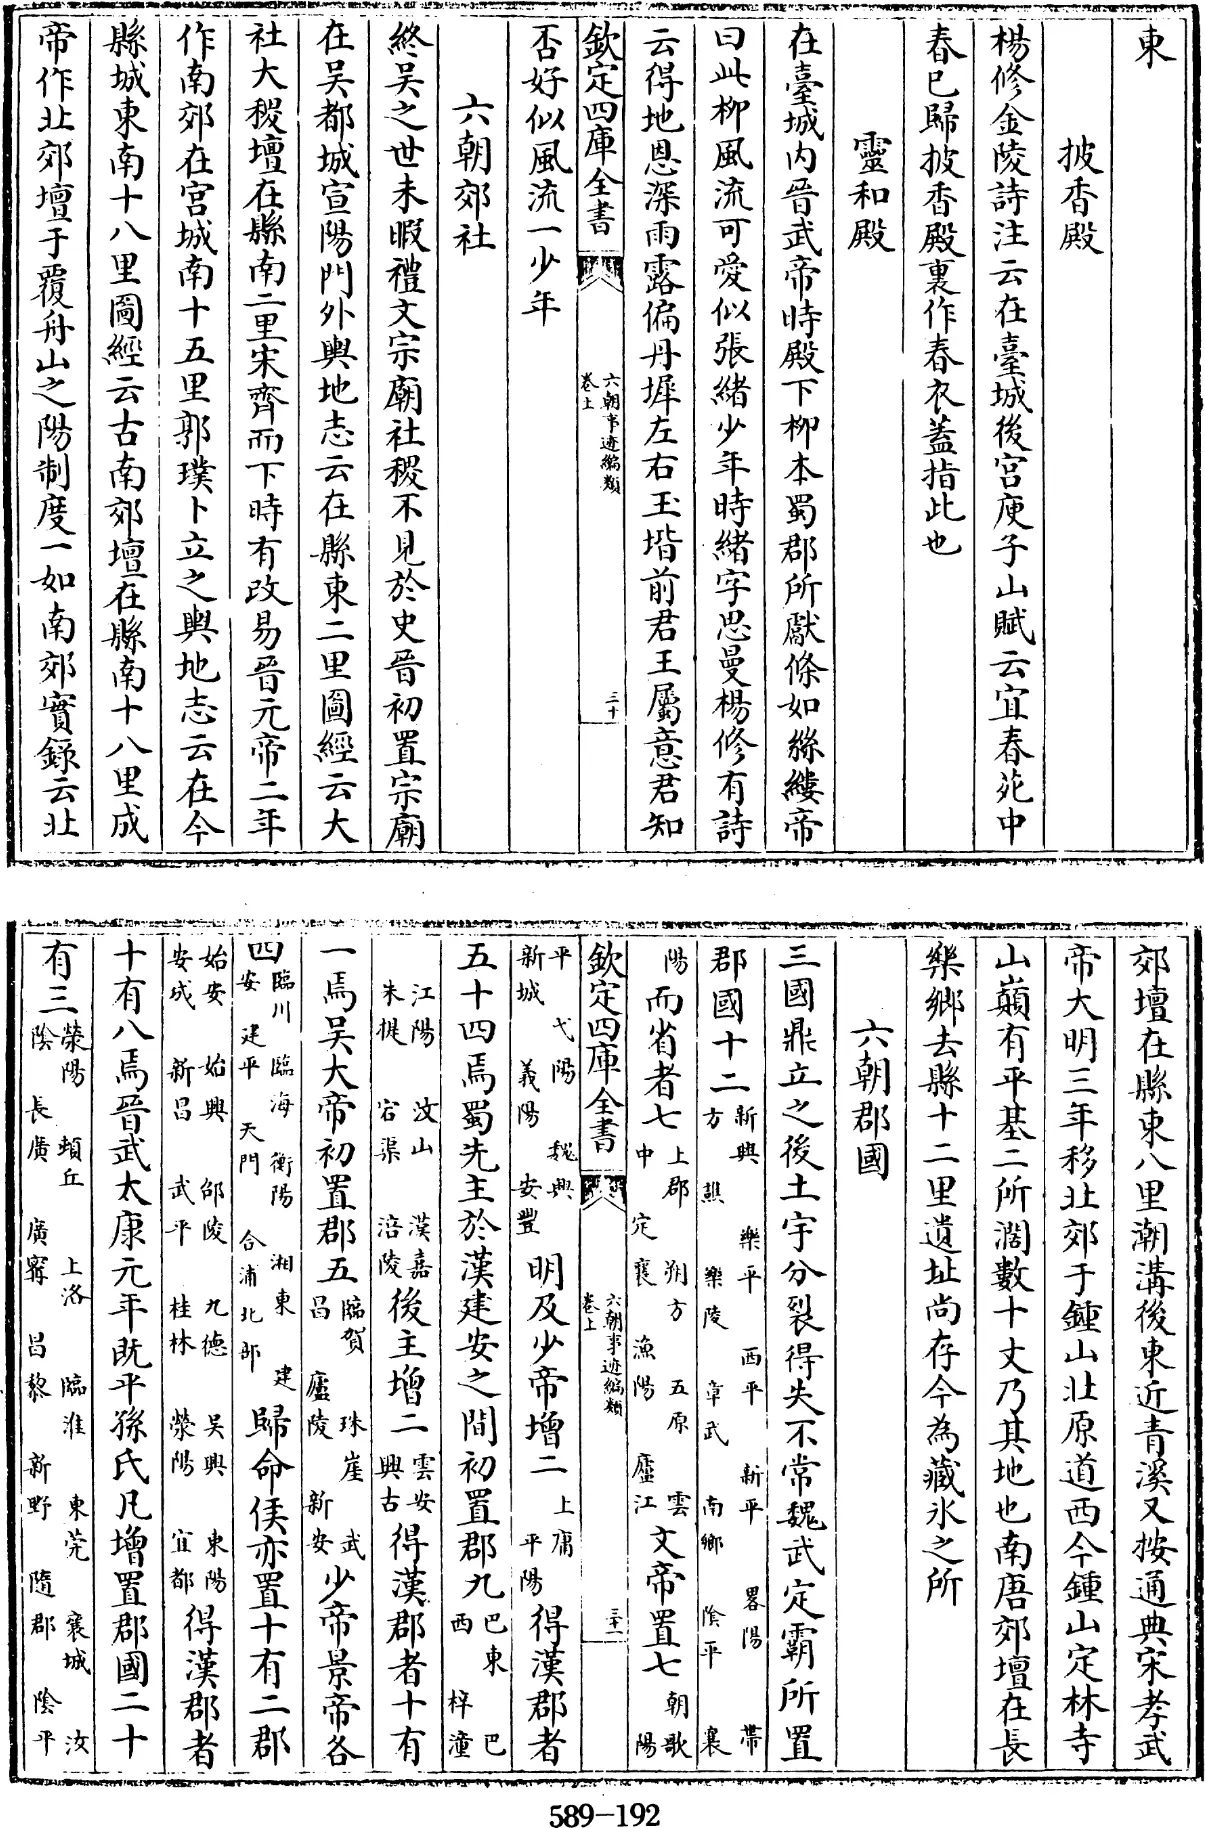 東
披香殿
楊修金陵詩注云在臺城後宮庾子山賦云宜春苑中
春已歸披香殿裏作春衣蓋指此也
靈和殿
在臺城内晉武帝時殿下柳本蜀郡所獻條如絲縷帝
曰此柳風流可愛似張緒少年時緒字思曼楊修有詩
云得地恩深雨露偏丹墀左右玉堦前君王屬意君知
欽定四庫全書 六朝事迹編類 卷上 三十
否好似風流一少年
六朝郊社
終吳之世未暇禮文宗廟社稷不見於史晉初置宗廟
在吳都城宣陽門外輿地志云在縣東二里圖經云大
社大稷壇在縣南二里宋齊而下時有改易晉元帝二年
作南郊在宮城南十五里郭璞卜立之輿地志云在今
縣城東南十八里圖經云古南郊壇在縣南十八里成
帝作北郊壇于覆舟山之陽制度一如南郊實録云北
郊壇在縣東八里潮溝後東近青溪又按通典宋孝武
帝大明三年移北郊于鍾山北原道西今鍾山定林寺
山巔有平基二所濶數十丈乃其地也南唐郊壇在長
樂鄉去縣十二里遺址尚存今為藏氷之所
六朝郡國
三國鼎立之後土宇分裂得失不常魏武定霸所置
郡國十二 新興 樂平 西平 新平 畧陽 帶方 譙 樂陵 章武 南鄉 陰平 襄
陽 而省者七 上郡 朔方 五原 雲中 定襄 漁陽 廬江 文帝置七 朝歌 陽
欽定四庫全書 六朝事迹編類 卷上 三十一
平 弋陽 魏興 新城 義陽 安豐 明及少帝增二 上庸 平陽 得漢郡者
五十四焉蜀先主於漢建安之間初置郡九 巴東 巴西 梓潼
江陽 汶山 漢嘉 朱提 宕渠 涪陵 後主增二 雲安 興古 得漢郡者十有
一焉吳大帝初置郡五 臨賀 珠崖 武昌 廬陵 新安 少帝景帝各
四 臨川 臨海 衡陽 湘東 建安 建平 天門 合浦北部 歸命侯亦置十有二郡
始安 始興 邵陵 九德 吳興 東陽 安成 新昌 武平 桂林 滎陽 宜都 得漢郡者
十有八焉晉武太康元年既平孫氏凡增置郡國二十
有三 滎陽 頓丘 上洛 臨淮 東莞 襄城 汝陰 長廣 廣寗 昌黎 新野 隨郡 陰平
589-192